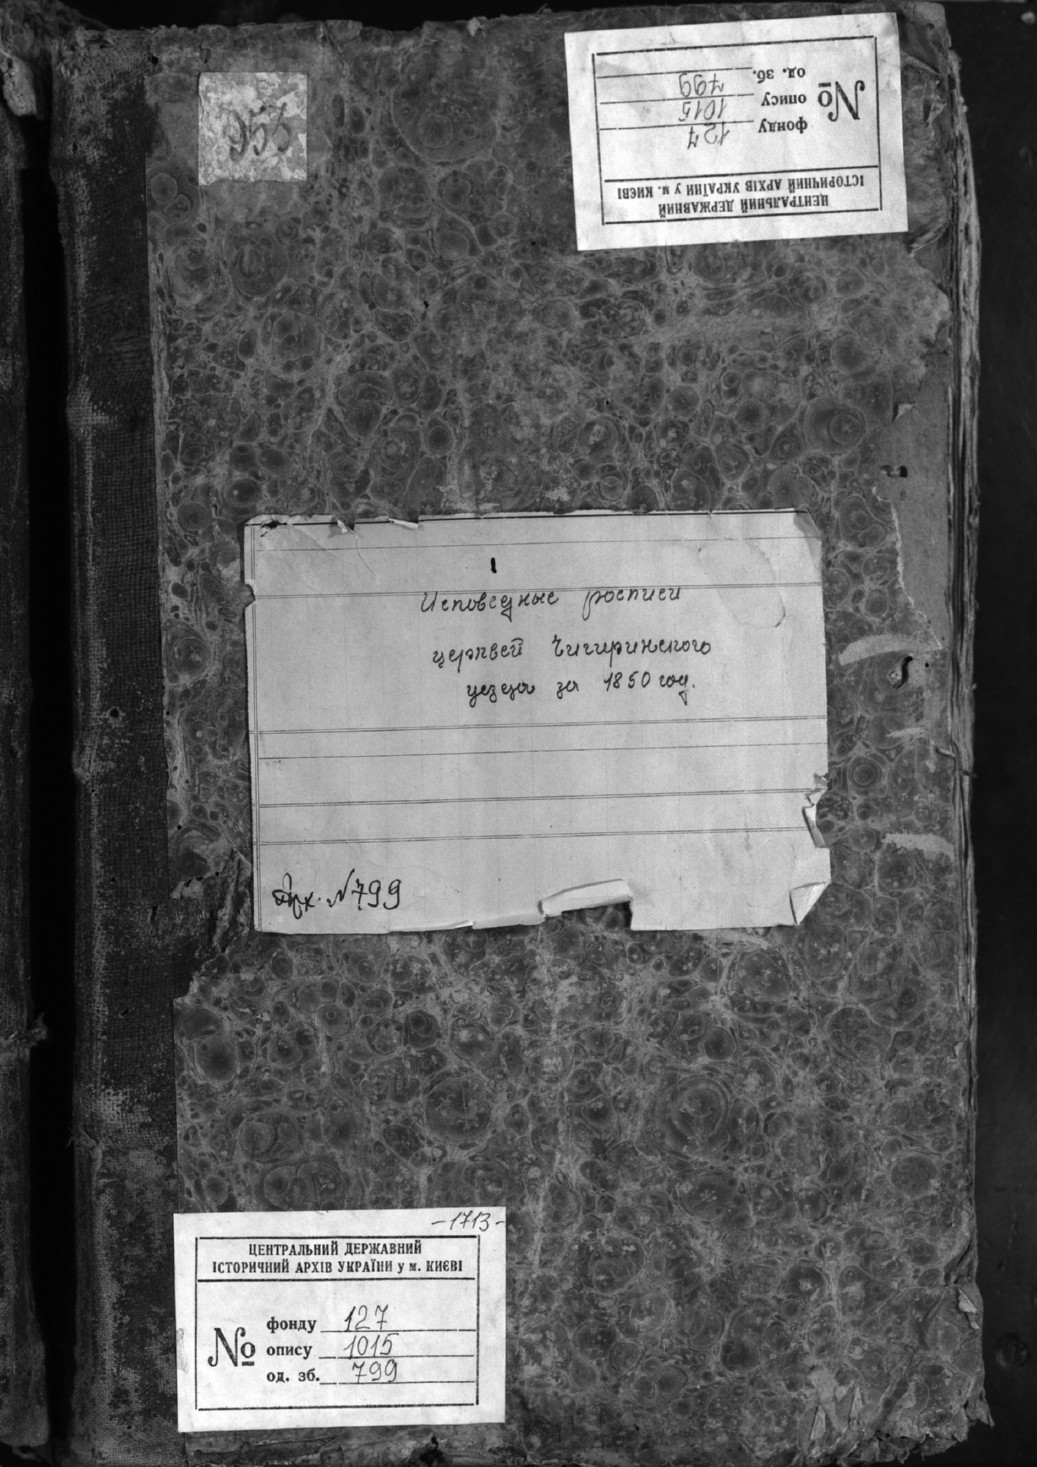 996
№
фонду 127
опису 1015
од. зб. 799
ЦЕНТРАЛЬНИЙ ДЕРЖАВНИЙ
ІСТОРИЧНИЙ АРХІВ УКРАЇНИ у м. КИЄВІ
Исповедные росписи
церквей Чигиринского
уезда за 1850 год.
Арх. №799
-1713-
ЦЕНТРАЛЬНИЙ ДЕРЖАВНИЙ
ІСТОРИЧНИЙ АРХІВ УКРАЇНИ у м. КИЄВІ
№
фонду 127
опису 1015
од. зб. 799